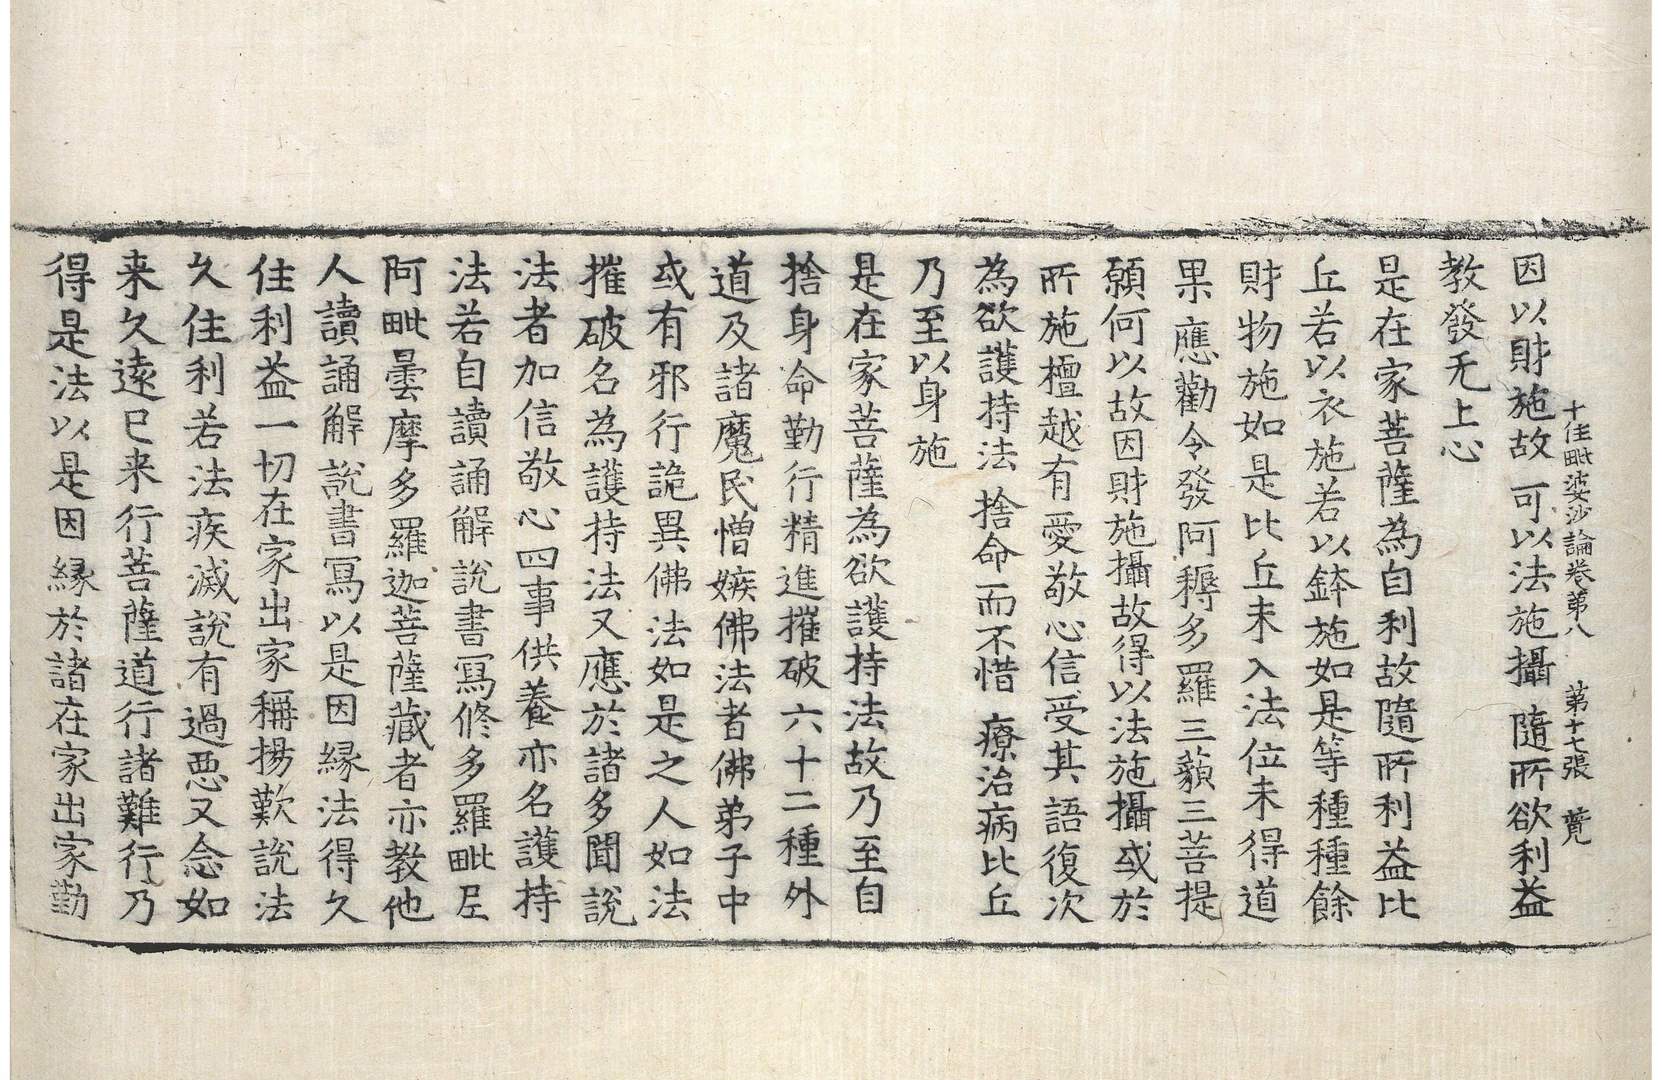 十住毗婆沙論卷第八　第十七張　覺
因以財施故　可以法施攝　隨所欲利益
教發无上心
是在家菩薩為自利故隨所利益比
丘若以衣施若以鉢施如是等種種餘
財物施如是比丘未入法位未得道
果應勸令發阿耨多羅三藐三菩提
願何以故因財施攝故得以法施攝或於
所施檀越有愛敬心信受其語復次
為欲護持法　捨命而不惜　療治病比丘
乃至以身施
是在家菩薩為欲護持法故乃至自
捨身命勤行精進摧破六十二種外
道及諸魔民憎嫉佛法者佛弟子中
或有邪行詭異佛法如是之人如法
摧破名為護持法又應於諸多聞說
法者加信敬心四事供養亦名護持
法若自讀誦解說書寫修多羅毗尼
阿毗曇摩多羅迦菩薩藏者亦教他
人讀誦解說書寫以是因緣法得久
住利益一切在家出家稱揚歎說法
久住利若法疾滅說有過惡又念如
来久遠已来行菩薩道行諸難行乃
得是法以是因緣於諸在家出家勤